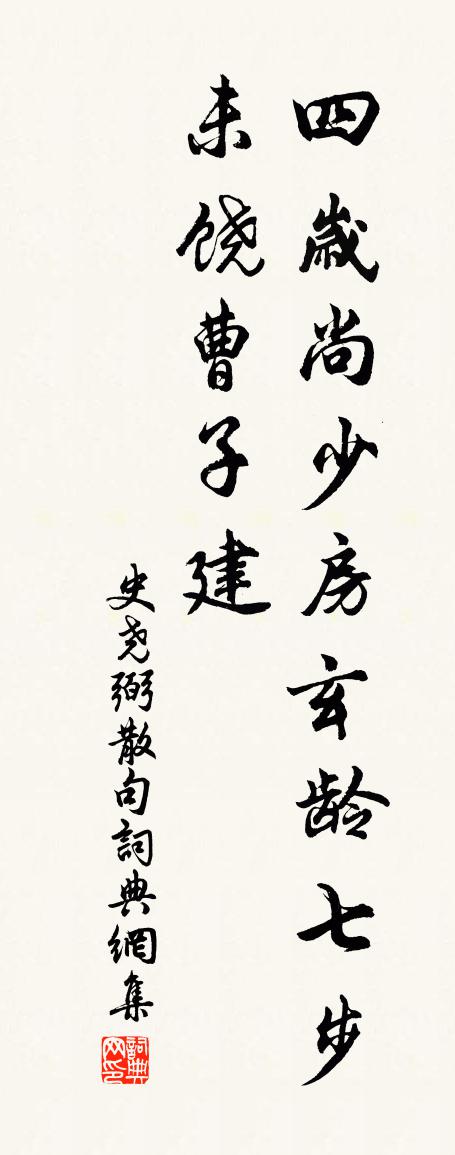 四歲尚少房玄龄七步
未饶曹子建
史尧弼散句詞典網集
詞典网印